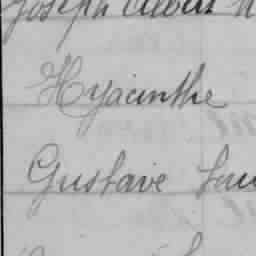 Joseph Albert
Hyacinthe
Gustave